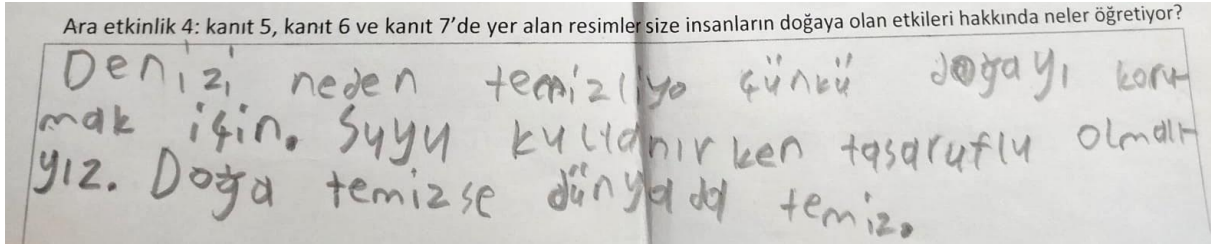 Ara etkinlik 4: kanıt 5, kanıt 6 ve kanıt 7’de yer alan resimler size insanların doğaya olan etkileri hakkında neler öğretiyor?
Denizi neden temizliyo çünkü doğayı koru-
mak için. Suyu kullanırken tasaruflu olmalı-
yız. Doğa temizse dünyada temiz.